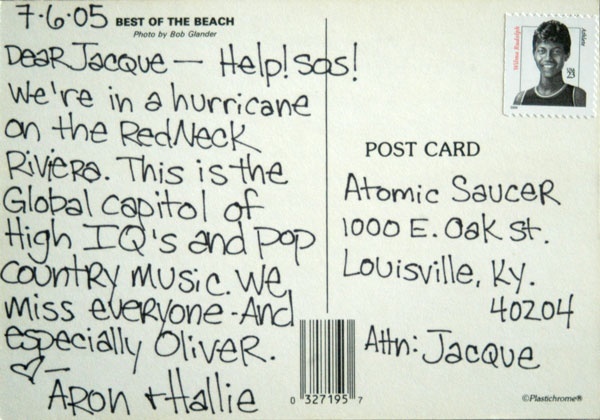 7-6-05
BEST OF THE BEACH
Photo by Bob Glander
Dear Jacque — Help! SOS!
We're in a hurricane
on the RedNeck
Riviera. This is the
Global capitol of
High IQ's and pop
country music. We
miss everyone - And
especially Oliver.
♡—
Aron + Hallie
Wilma Rudolph
USA
23
POST CARD
Atomic Saucer
1000 E. Oak St.
Louisville, Ky.
40204
Attn: Jacque
0 327195 7
©Plastichrome®